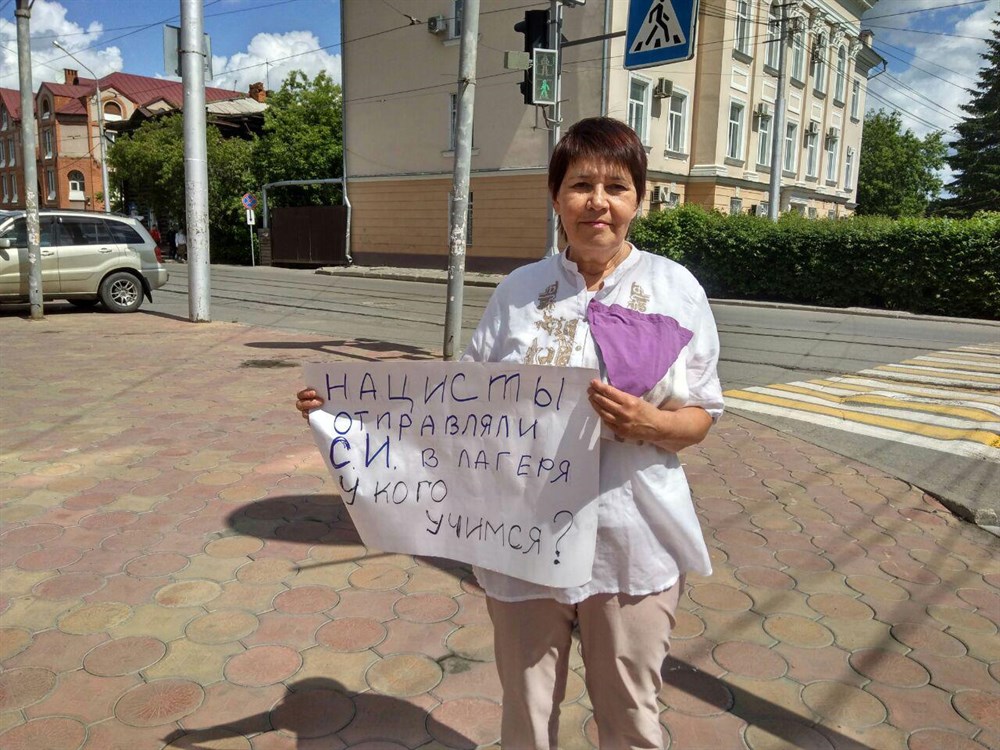 НАЦИСТЫ
ОТПРАВЛЯЛИ
С.И. В ЛАГЕРЯ
У КОГО
УЧИМСЯ?